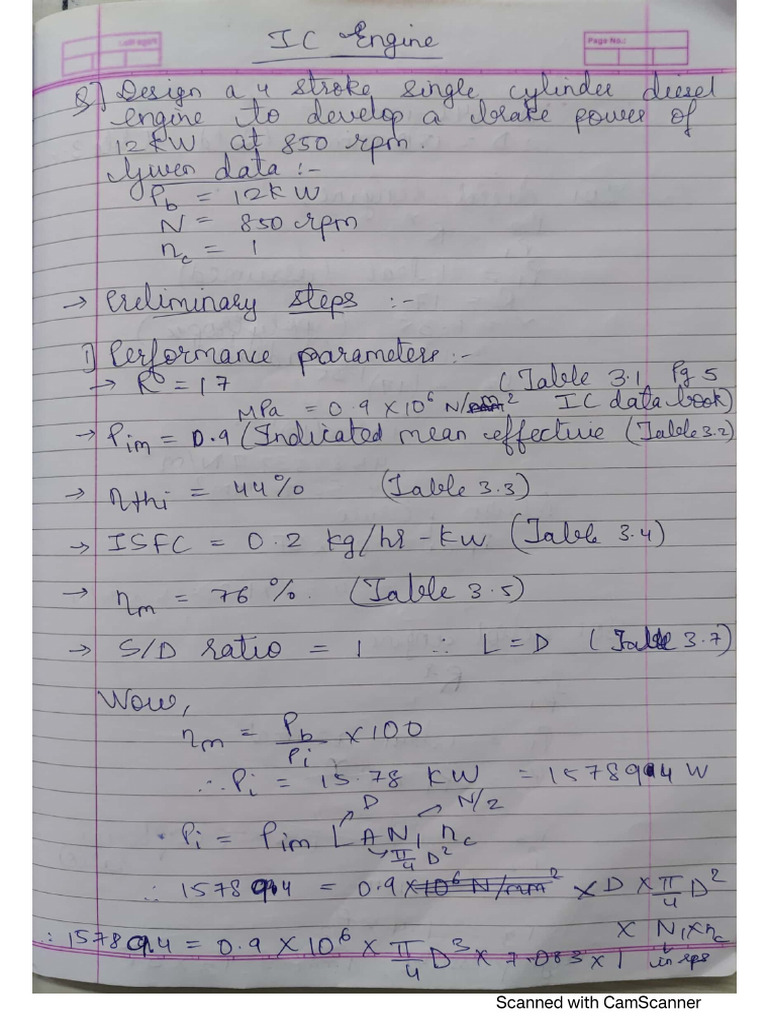 Page No.:
IC Engine
Q] Design a 4 stroke single cylinder diesel
engine to develop a brake power of
12 KW at 850 rpm.
Given data :-
Pb = 12KW
N = 850 rpm
nc = 1
→ Preliminary steps :-
1] Performance parameters :-
→ R° = 17 (Table 3.1 Pg 5
MPa = 0.9 X10⁶ N/m² IC data book)
→ Pim = 0.9 (Indicated mean effective (Table 3.2)
→ ηthi = 44% (Table 3.3)
→ ISFC = 0.2 kg/hr - KW (Table 3.4)
→ ηm = 76 %. (Table 3.5)
→ S/D ratio = 1 ∴ L = D (Table 3.7)
Now,
ηm = Pb/Pi X100
∴ Pi = 15.78 KW = 15789.4 W
D N/2
Pi = Pim L A N1 nc
π/4 D²
∴ 15789.4 = 0.9 X10⁶ N/mm² X D X π/4 D²
X N1 X nc
∴ 15789.4 = 0.9 X 10⁶ X π/4 D³ X 7.083 X 1 in rps
Scanned with CamScanner